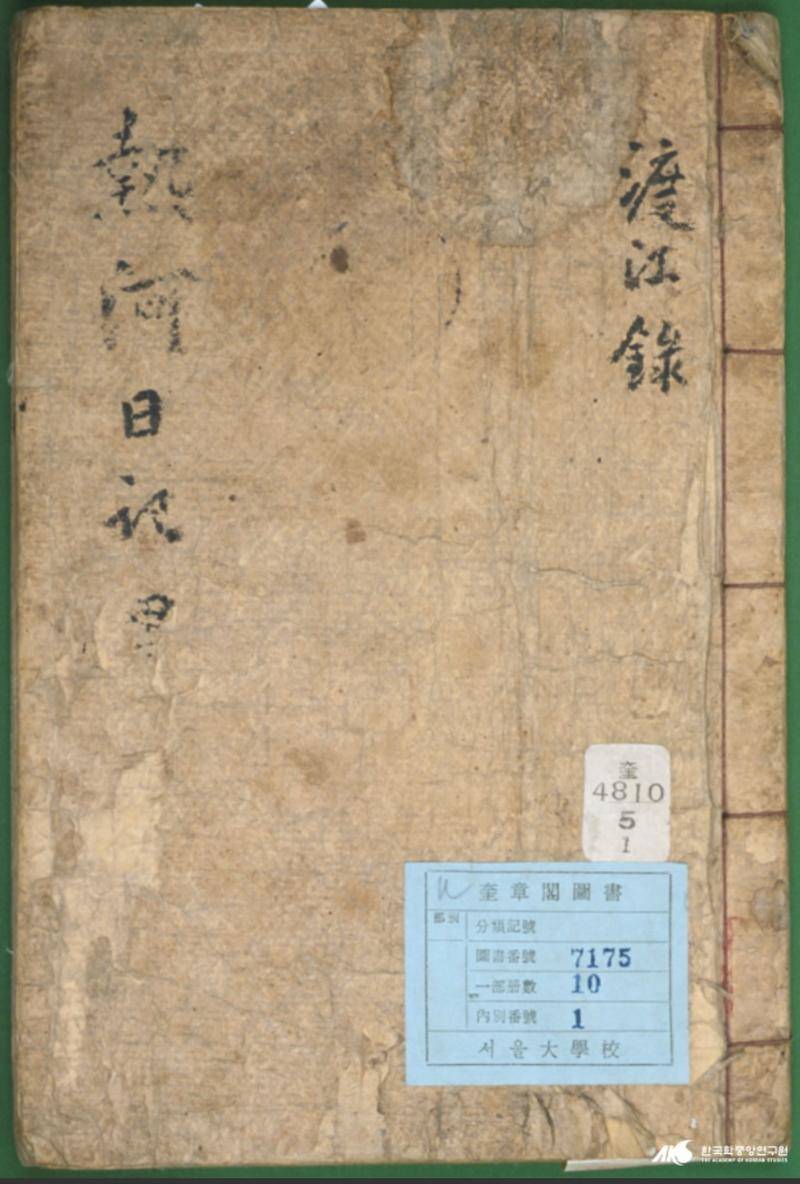 渡江錄
熱河日記
奎
4810
5
1
奎章閣圖書
部別
分類記號
圖書番號 7175
一部冊數 10
內別番號 1
서울大學校
한국학중앙연구원
THE ACADEMY OF KOREAN STUDIES